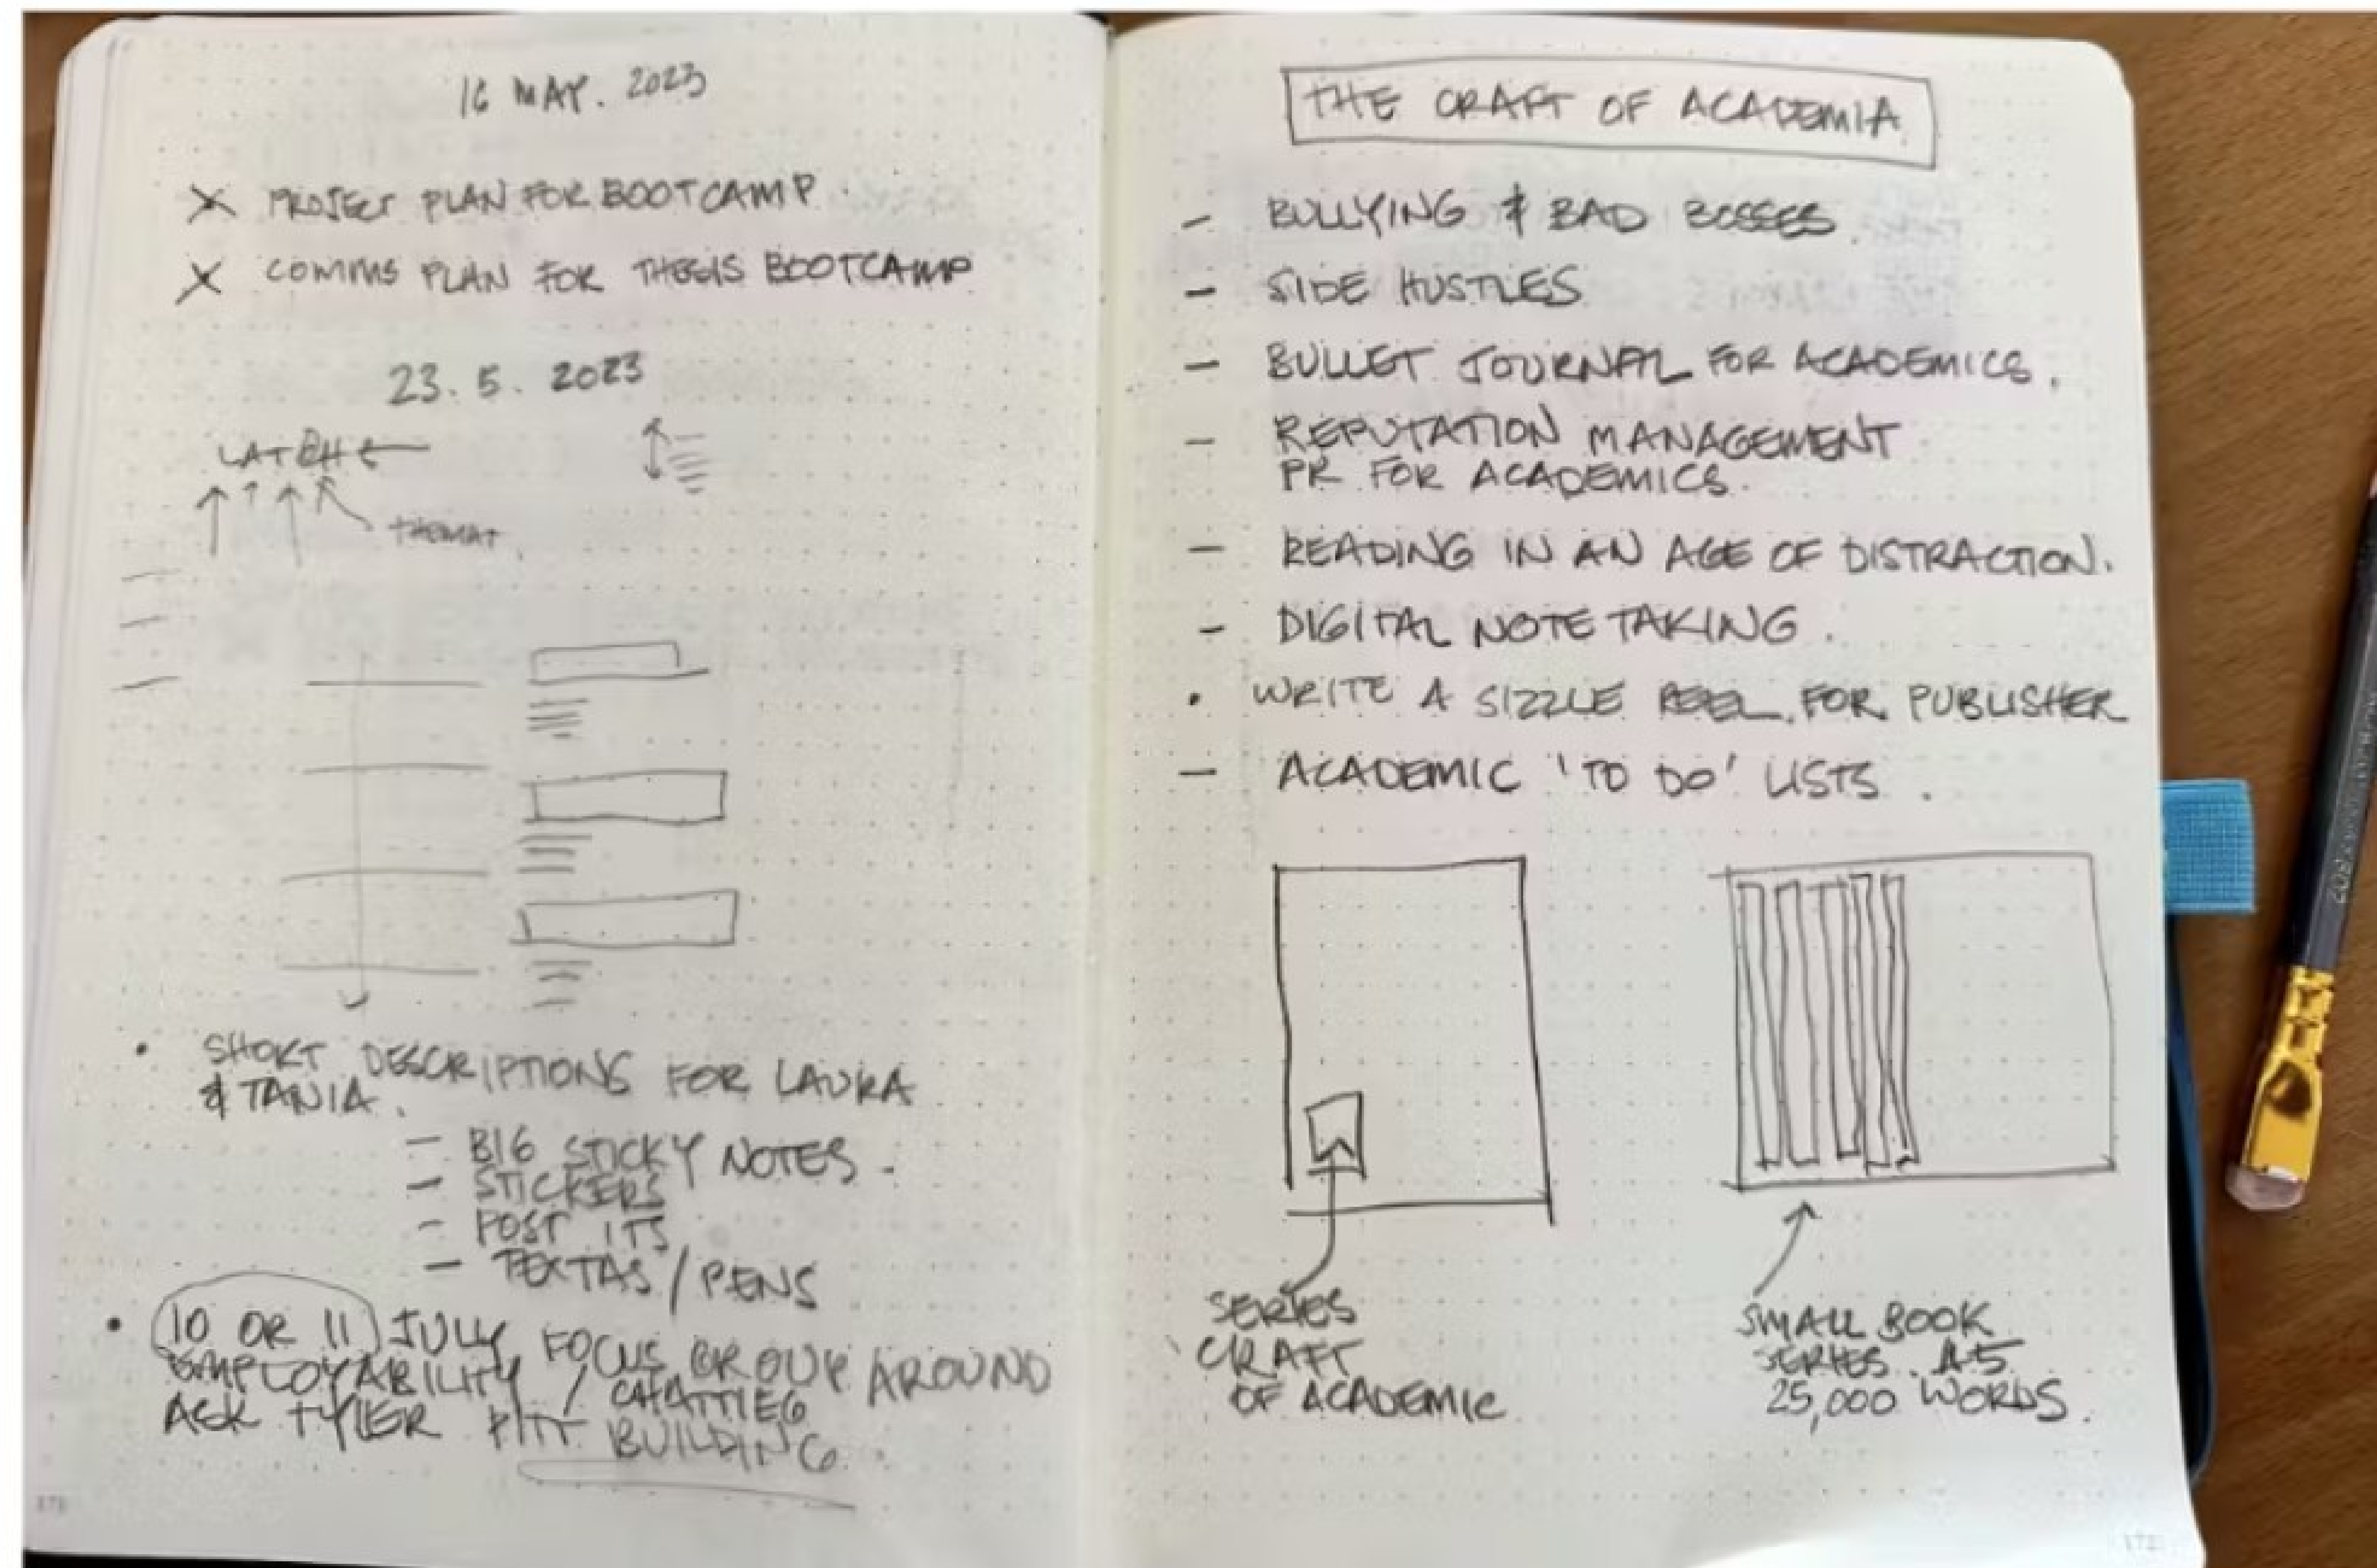 16 MAY. 2023
X PROJECT PLAN FOR BOOTCAMP.
X COMMS PLAN FOR THESIS BOOTCAMP
23.5.2023
LATCH
THEMAT.
• SHORT DESCRIPTIONS FOR LAURA
& TANIA.
– BIG STICKY NOTES.
– STICKERS
– POST ITS
– TEXTAS / PENS
• 10 OR 11 JULY FOCUS GROUP AROUND
EMPLOYABILITY / 
ASK TYLER PITT BUILDING
THE CRAFT OF ACADEMIA
– BULLYING & BAD BOSSES.
– SIDE HUSTLES
– BULLET JOURNAL FOR ACADEMICS.
– REPUTATION MANAGEMENT
PR FOR ACADEMICS.
– READING IN AN AGE OF DISTRACTION.
– DIGITAL NOTE TAKING.
• WRITE A SIZZLE REEL FOR PUBLISHER
– ACADEMIC 'TO DO' LISTS.
SERIES
CRAFT
OF ACADEMIC
SMALL BOOK
SERIES. A5
25,000 WORDS.